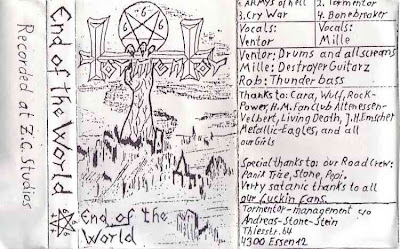 End of the World
Recorded at Z.C. Studios
6 6 6
Tormentor
End of the
World
1. Armys of hell
2. Tormentor
3. Cry War
4. Bonebreaker
Vocals:
Ventor
Vocals:
Mille
Ventor: Drums and all screams
Mille: Destroyer Guitarz
Rob: Thunderbass
Thanks to: Cara, Wulf, Rock-
Power, H.M. Fanclub Altenessen-
Velbert, Living Death, J.H. Emscher
Metallic-Eagles, and all
our Girls
Special thanks to: our Road Crew:
Panik Träe, Stone, Pepi.
Verry satanic thanks to all
our fuckin fans.
Tormentor-management c/o
Andreas-Stone-Stein
Thiesstr. 64
4300 Essen 12